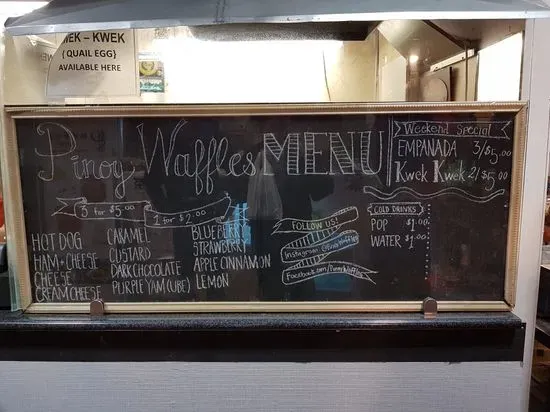 EK - KWEK
{QUAIL EGG}
AVAILABLE HERE
Pinoy Waffles MENU
5 for $5.00
1 for $2.00
HOT DOG
HAM & CHEESE
CHEESE
CREAM CHEESE
CARAMEL
CUSTARD
DARK CHOCOLATE
PURPLE YAM (UBE)
BLUEBERRY
STRAWBERRY
APPLE CINNAMON
LEMON
FOLLOW US!
Instagram: @PinoyWaffles
Facebook.com/PinoyWaffles
Weekend Special
EMPANADA 3/$5.00
Kwek Kwek 2/$5.00
COLD DRINKS
POP $1.00
WATER $1.00